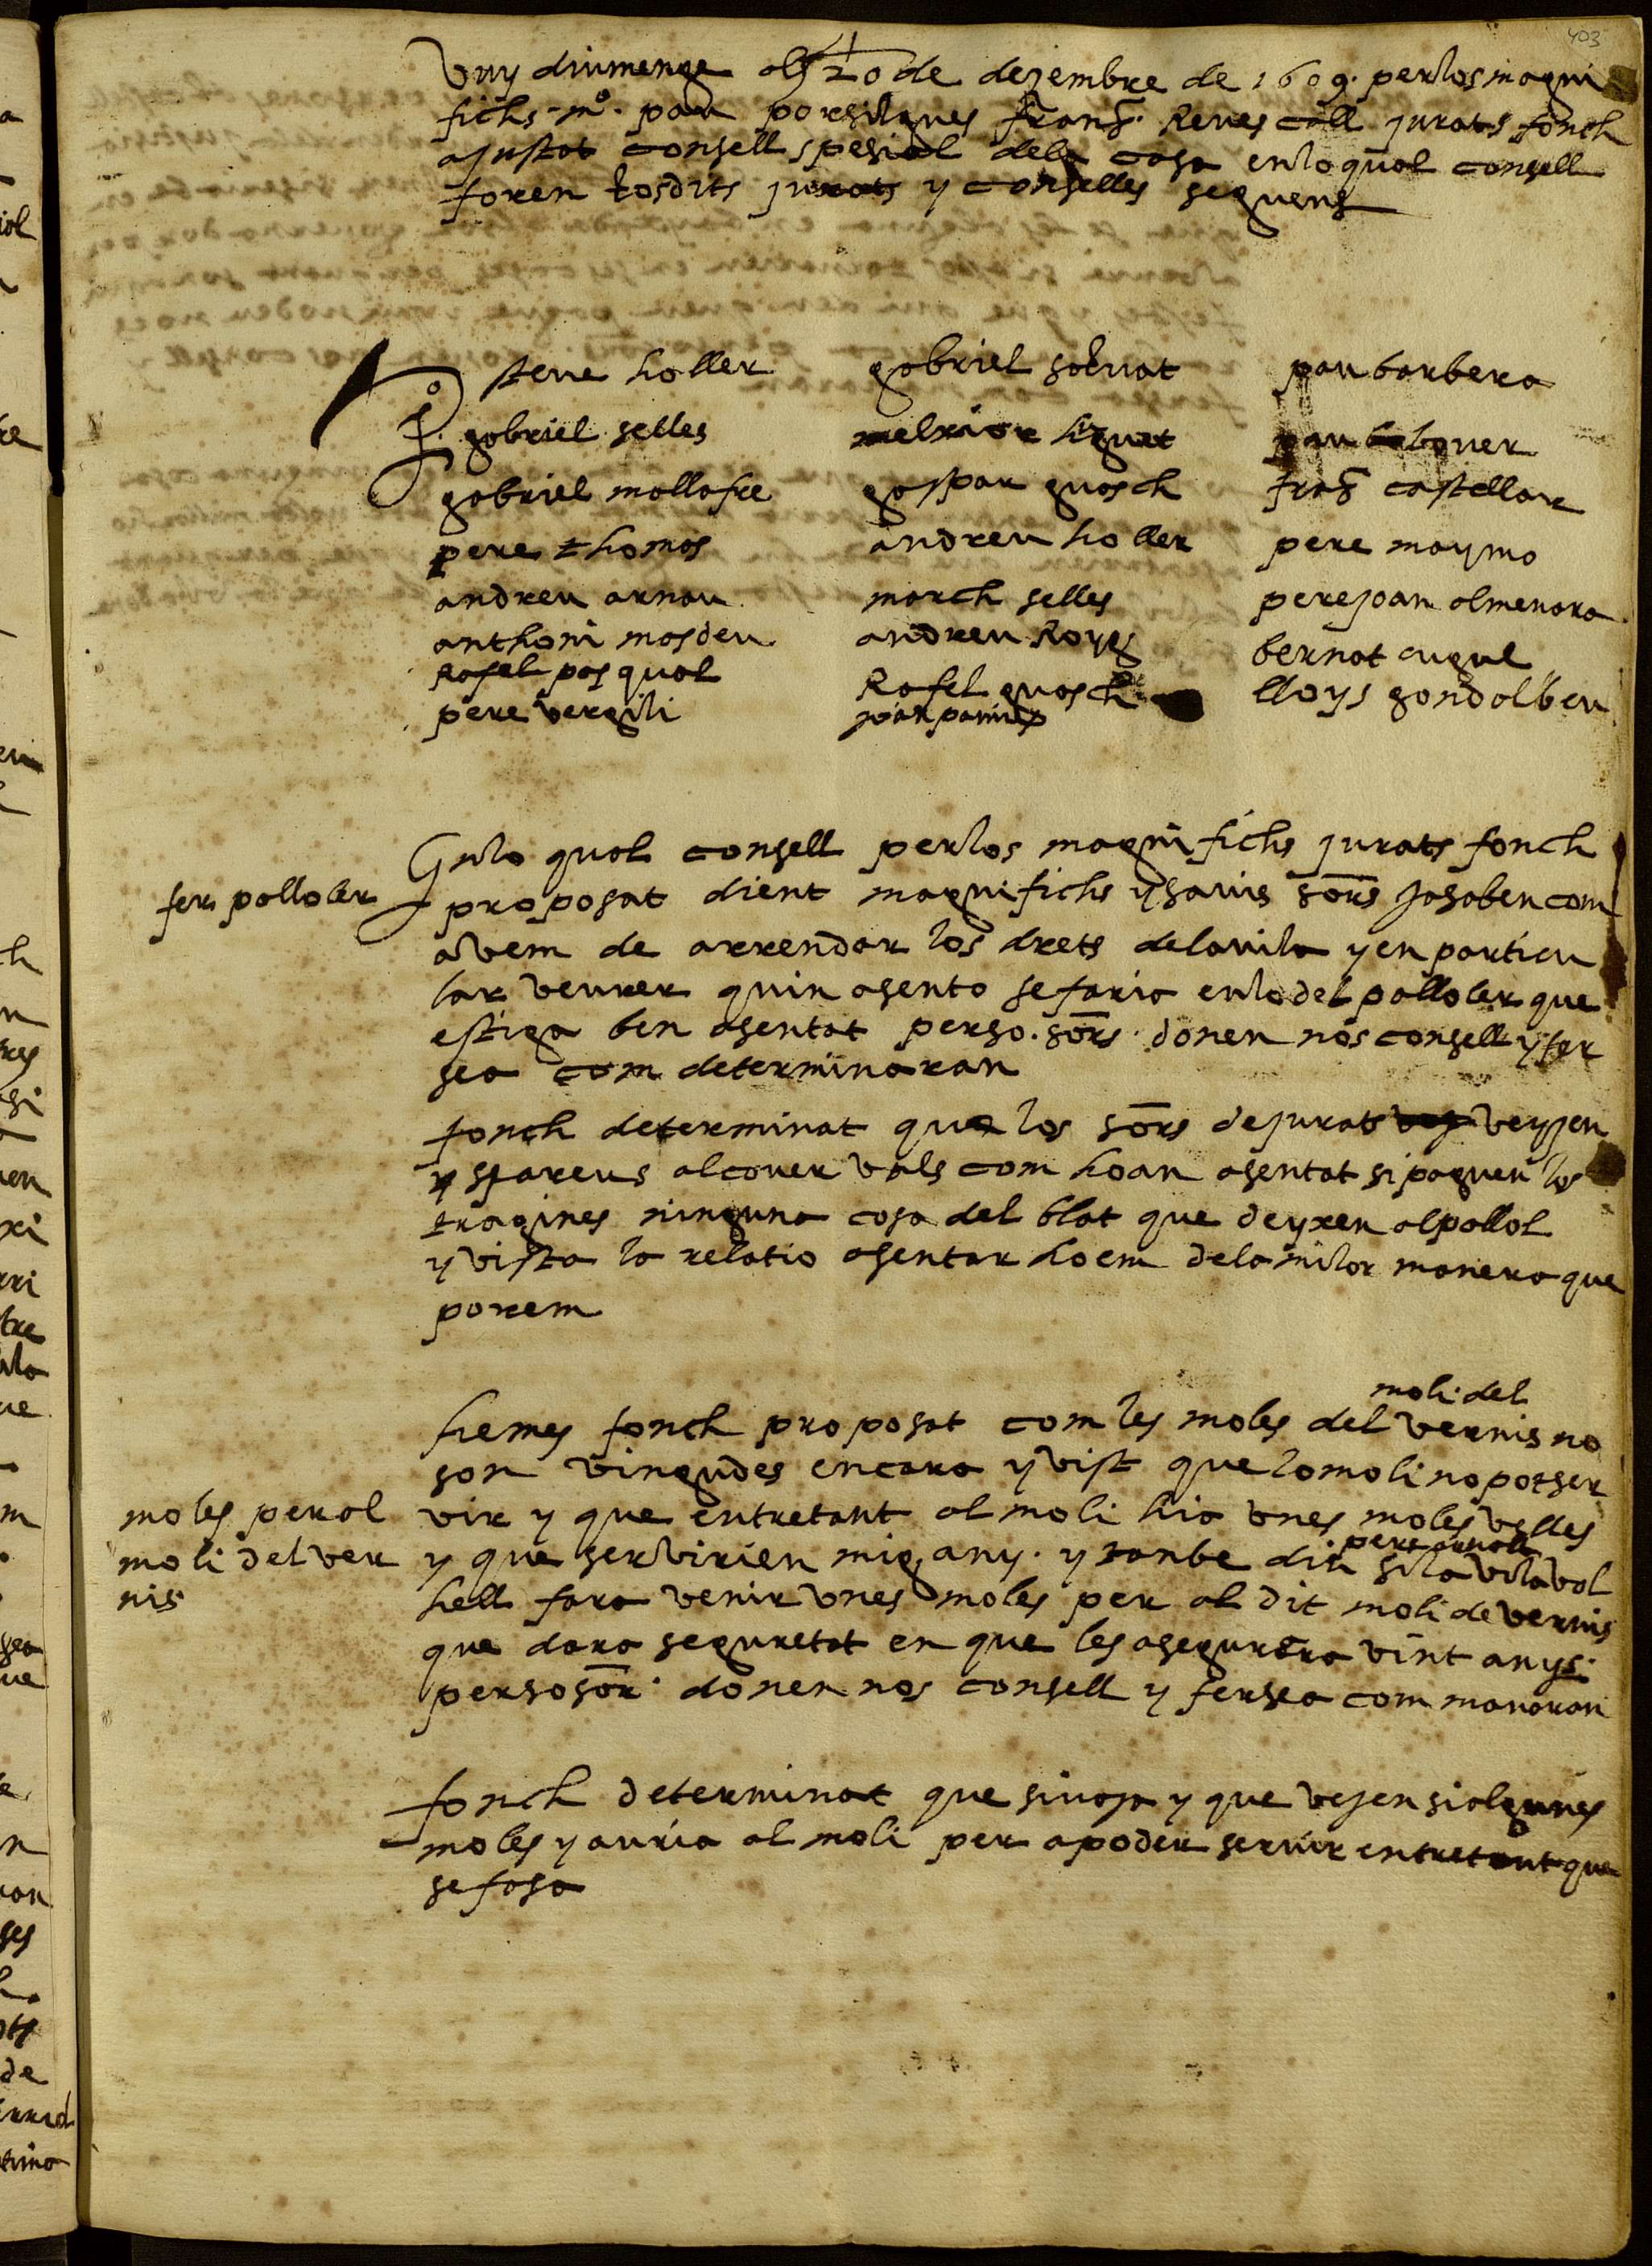 403
Vuy diumenge als 20 de dezembre de 1609. perlos magni
fichs mº. pau porsilgues frans. Reves coll jurats fonch
ajustat consell spesial dela casa enloqual consell
foren losdits jurats y conselles seguens
steve holler
gabriel selles
gabriel mollofre
pere thomas
andreu arnau
anthoni masdeu
Rafel pasqual
pere vergili
gabriel salvat
melxior huguet
gaspar guasch
andreu holler
march selles
andreu Royg
Rafel guasch
joan panies
pau barbera
pau bover
frans castellar
pere maymo
perejoan almenara
bernat cugul
lloys gondolbeu
fer palloler
Enlo qual consell perlos magnifichs jurats fonch
proposat dient magnifichs y savis sors jasaben com
avem de arrendar los drets delavila y en particu
lar veurer quin asento sefaria enlodel palloler que
estiga ben asentat perso. sors. donen nos consell y fer
sea com determinaran
fonch determinat que los sors dejurats vejen
y spareus alcover vals com hoan asentat si paguen los
tragines ninguna cosa del blat que deyxen alpallol
y vista la relatio asentar hoem dela milor manera que
porem
moles peral
moli del ver
nis
hemes fonch proposat com les moles del moli del vernis no
son vingudes encara y vist que lomoli nopotser
vir y que entretant al moli hia unes moles velles
y que servirien mig any. y tanbe diu pere arnall sila vila vol
hell fara venir unes moles per al dit moli de vernis
que dara seguretat en que les asegurara vint anys.
persosor. donen nos consell y fersea com manaran
fonch determinat que sivaja y que vejen sialgunes
moles y auria al moli per apoder servir entretant que
sefasa